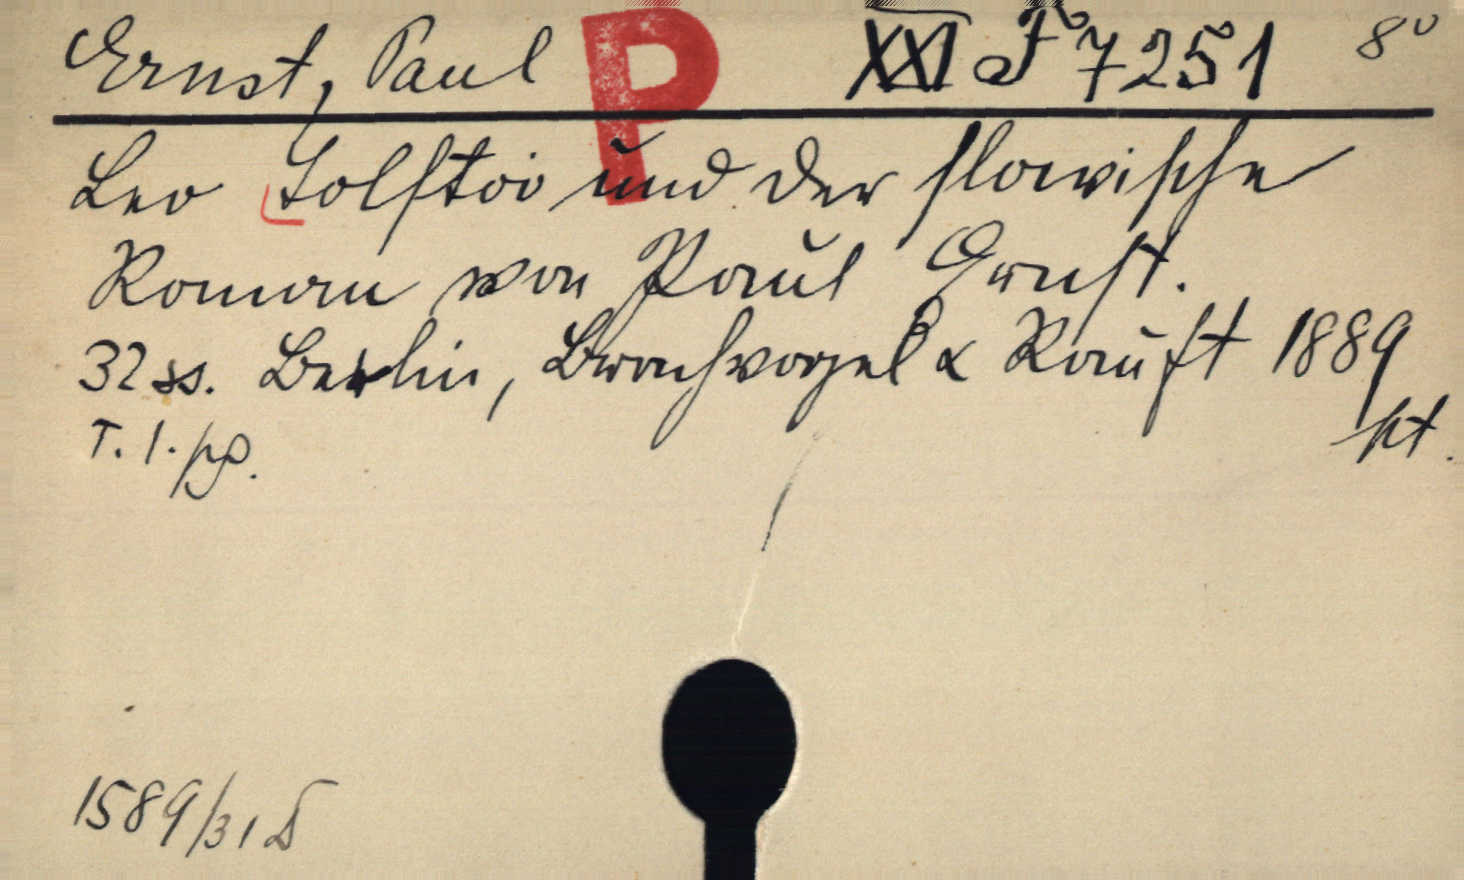 Ernst, Paul P XXI F 7251 8°
Leo Tolstoi und der slawische
Roman von Paul Ernst.
32 ss. Berlin, Brachvogel & Ranft 1889
T. 1. pg. kt.
1589/31 D